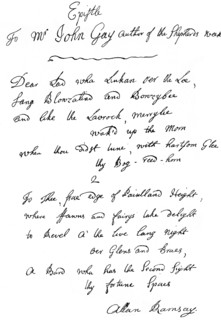 Epistle
To Mr John Gay Author of the Shepherds week
Dear Lad wha linkan o'er the Lee,
Sang Blowzalind and Bowzybee
and like the Lavrock, merrylie
wak'd up the Morn
when thou didst tune, with heartsom Glee
thy Bog-Reed-horn
2
To Thee frae edge of Pentland Height,
where Fawns and fairys take delight
to Revel a' the live lang night
o'er Glens and braes,
a Bard wha has the Second Sight
thy fortune Spaes
Allan Ramsay